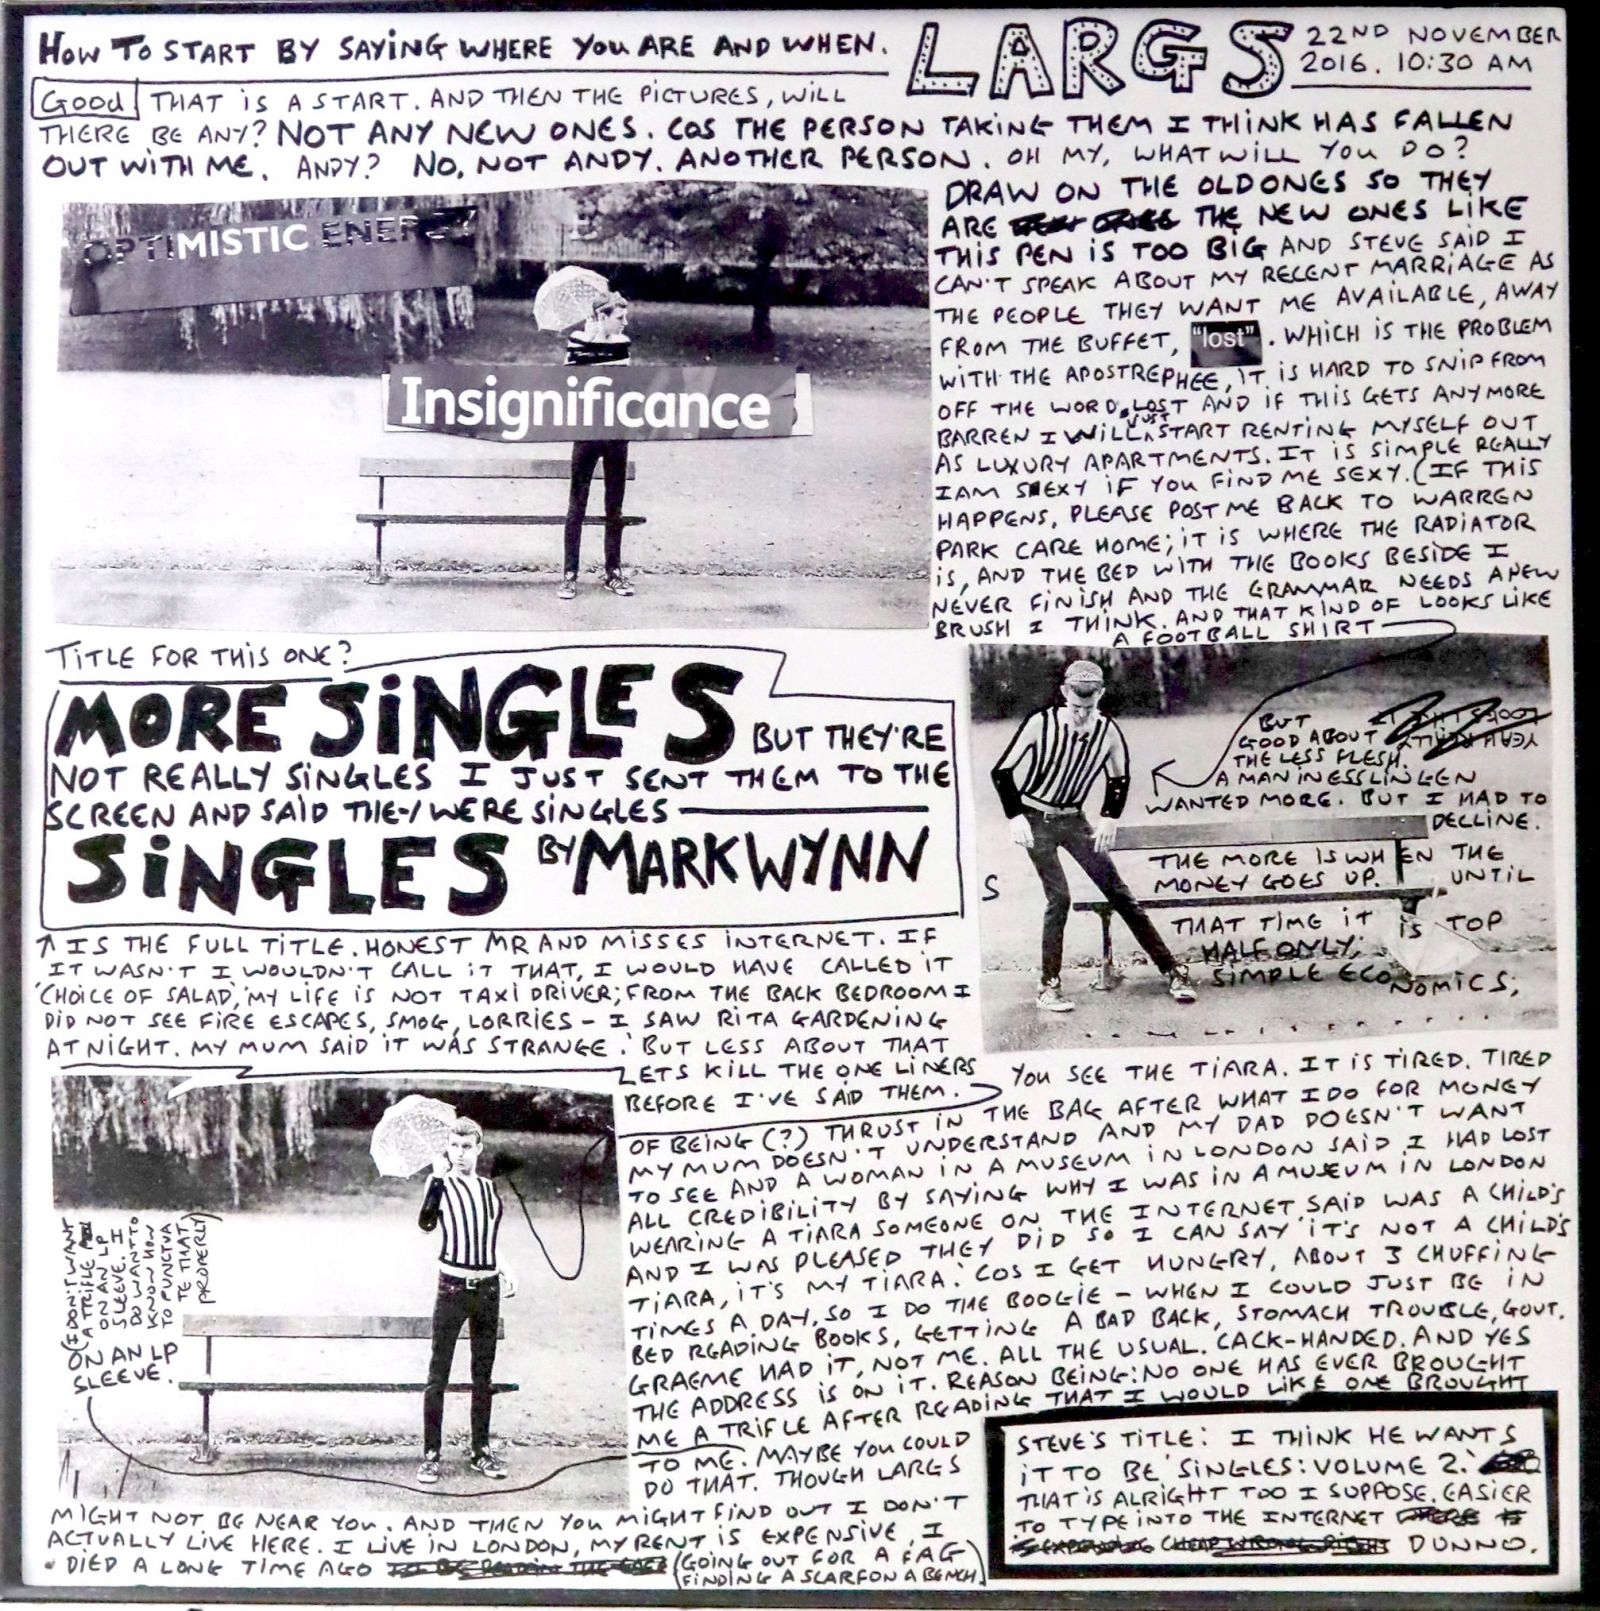 HOW TO START BY SAYING WHERE YOU ARE AND WHEN.
LARGS
22ND NOVEMBER
2016. 10:30 AM
Good THAT IS A START. AND THEN THE PICTURES, WILL
THERE BE ANY? NOT ANY NEW ONES. COS THE PERSON TAKING THEM I THINK HAS FALLEN
OUT WITH ME. ANDY? NO. NOT ANDY. ANOTHER PERSON. OH MY, WHAT WILL YOU DO?
DRAW ON THE OLD ONES SO THEY
ARE THE NEW ONES LIKE
THIS PEN IS TOO BIG AND STEVE SAID I
CAN'T SPEAK ABOUT MY RECENT MARRIAGE AS
THE PEOPLE THEY WANT ME AVAILABLE, AWAY
FROM THE BUFFET, "lost". WHICH IS THE PROBLEM
WITH THE APOSTREPHEE, IT IS HARD TO SNIP FROM
OFF THE WORD LOST AND IF THIS GETS ANYMORE
BARREN I WILL JUST START RENTING MYSELF OUT
AS LUXURY APARTMENTS. IT IS SIMPLE REALLY
I AM SEXY IF YOU FIND ME SEXY. (IF THIS
HAPPENS, PLEASE POST ME BACK TO WARREN
PARK CARE HOME; IT IS WHERE THE RADIATOR
IS, AND THE BED WITH THE BOOKS BESIDE I
NEVER FINISH AND THE GRAMMAR NEEDS A NEW
BRUSH I THINK. AND THAT KIND OF LOOKS LIKE
A FOOTBALL SHIRT
OPTIMISTIC ENERGY
Insignificance
TITLE FOR THIS ONE?
MORE SINGLES BUT THEY'RE
NOT REALLY SINGLES I JUST SENT THEM TO THE
SCREEN AND SAID THEY WERE SINGLES
SINGLES BY MARK WYNN
BUT
GOOD ABOUT
YEAH REALLY
THE LESS FLESH.
A MAN IN ESSLINGEN
WANTED MORE. BUT I HAD TO
DECLINE.
THE MORE IS WHEN THE
MONEY GOES UP. UNTIL
THAT TIME IT IS TOP
HALF ONLY;
SIMPLE ECONOMICS;
S
↑ IS THE FULL TITLE. HONEST MR AND MISSES INTERNET. IF
IT WASN'T I WOULDN'T CALL IT THAT, I WOULD HAVE CALLED IT
'CHOICE OF SALAD,' MY LIFE IS NOT TAXI DRIVER; FROM THE BACK BEDROOM I
DID NOT SEE FIRE ESCAPES, SMOG, LORRIES - I SAW RITA GARDENING
AT NIGHT. MY MUM SAID IT WAS STRANGE.' BUT LESS ABOUT THAT
LETS KILL THE ONE LINERS
BEFORE I'VE SAID THEM.
YOU SEE THE TIARA. IT IS TIRED. TIRED
OF BEING (?) THRUST IN THE BAG AFTER WHAT I DO FOR MONEY
MY MUM DOESN'T UNDERSTAND AND MY DAD DOESN'T WANT
TO SEE AND A WOMAN IN A MUSEUM IN LONDON SAID I HAD LOST
ALL CREDIBILITY BY SAYING WHY I WAS IN A MUSEUM IN LONDON
WEARING A TIARA SOMEONE ON THE INTERNET SAID WAS A CHILD'S
AND I WAS PLEASED THEY DID SO I CAN SAY 'IT'S NOT A CHILD'S
TIARA, IT'S MY TIARA.' COS I GET HUNGRY, ABOUT 3 CHUFFING
TIMES A DAY, SO I DO THE BOOGIE - WHEN I COULD JUST BE IN
BED READING BOOKS, GETTING A BAD BACK, STOMACH TROUBLE, GOUT.
GRAEME HAD IT, NOT ME. ALL THE USUAL. CACK-HANDED. AND YES
THE ADDRESS IS ON IT. REASON BEING: NO ONE HAS EVER BROUGHT
ME A TRIFLE AFTER READING THAT I WOULD LIKE ONE BROUGHT
TO ME. MAYBE YOU COULD
DO THAT. THOUGH LARGS
MIGHT NOT BE NEAR YOU. AND THEN YOU MIGHT FIND OUT I DON'T
ACTUALLY LIVE HERE. I LIVE IN LONDON, MY RENT IS EXPENSIVE, I
DIED A LONG TIME AGO (GOING OUT FOR A FAG
FINDING A SCARF ON A BENCH.)
(I DON'T WANT
A TRIFLE
ON AN LP
SLEEVE. I
DO WANT TO
KNOW HOW
TO PUNCTUA
TE THAT
PROPERLY)
ON AN LP
SLEEVE.
STEVE'S TITLE: I THINK HE WANTS
IT TO BE 'SINGLES: VOLUME 2.'
THAT IS ALRIGHT TOO I SUPPOSE. EASIER
TO TYPE INTO THE INTERNET
DUNNO.